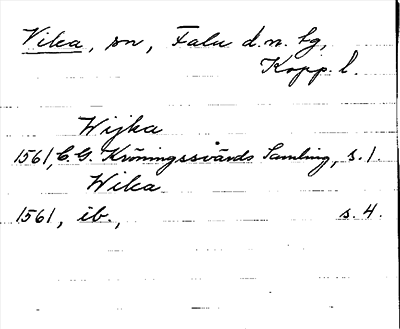 Vika, sn, Falu d.n. bg,
Kopp. l.
Wijka
1561, C. G. Kröningssvärds Samling, s. 1.
Wika
1561, ib., s. 4.